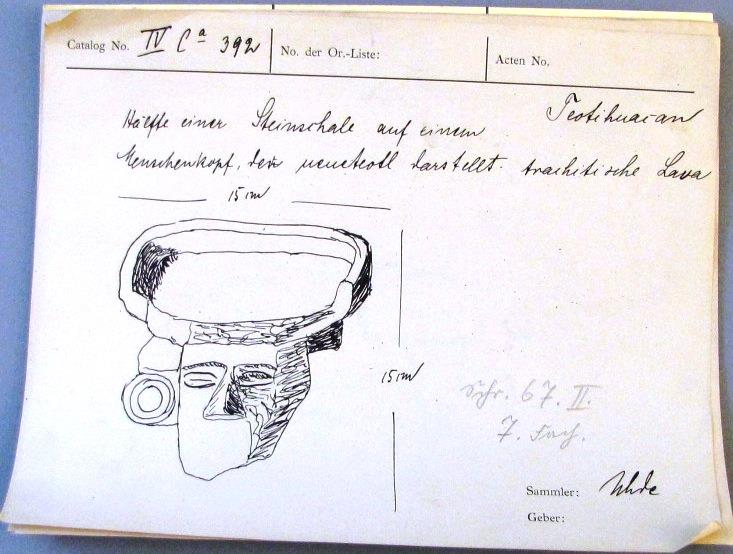 Catalog No. IV Ca 392
No. der Or.-Liste:
Acten No.
Teotihuacan
Hälfte einer Steinschale auf einem
Menschenkopf, der ueueteotl darstellt. trachitische Lava
15 cm
15 cm
Schr. 67. II.
7. Fach.
Sammler: Uhde
Geber: